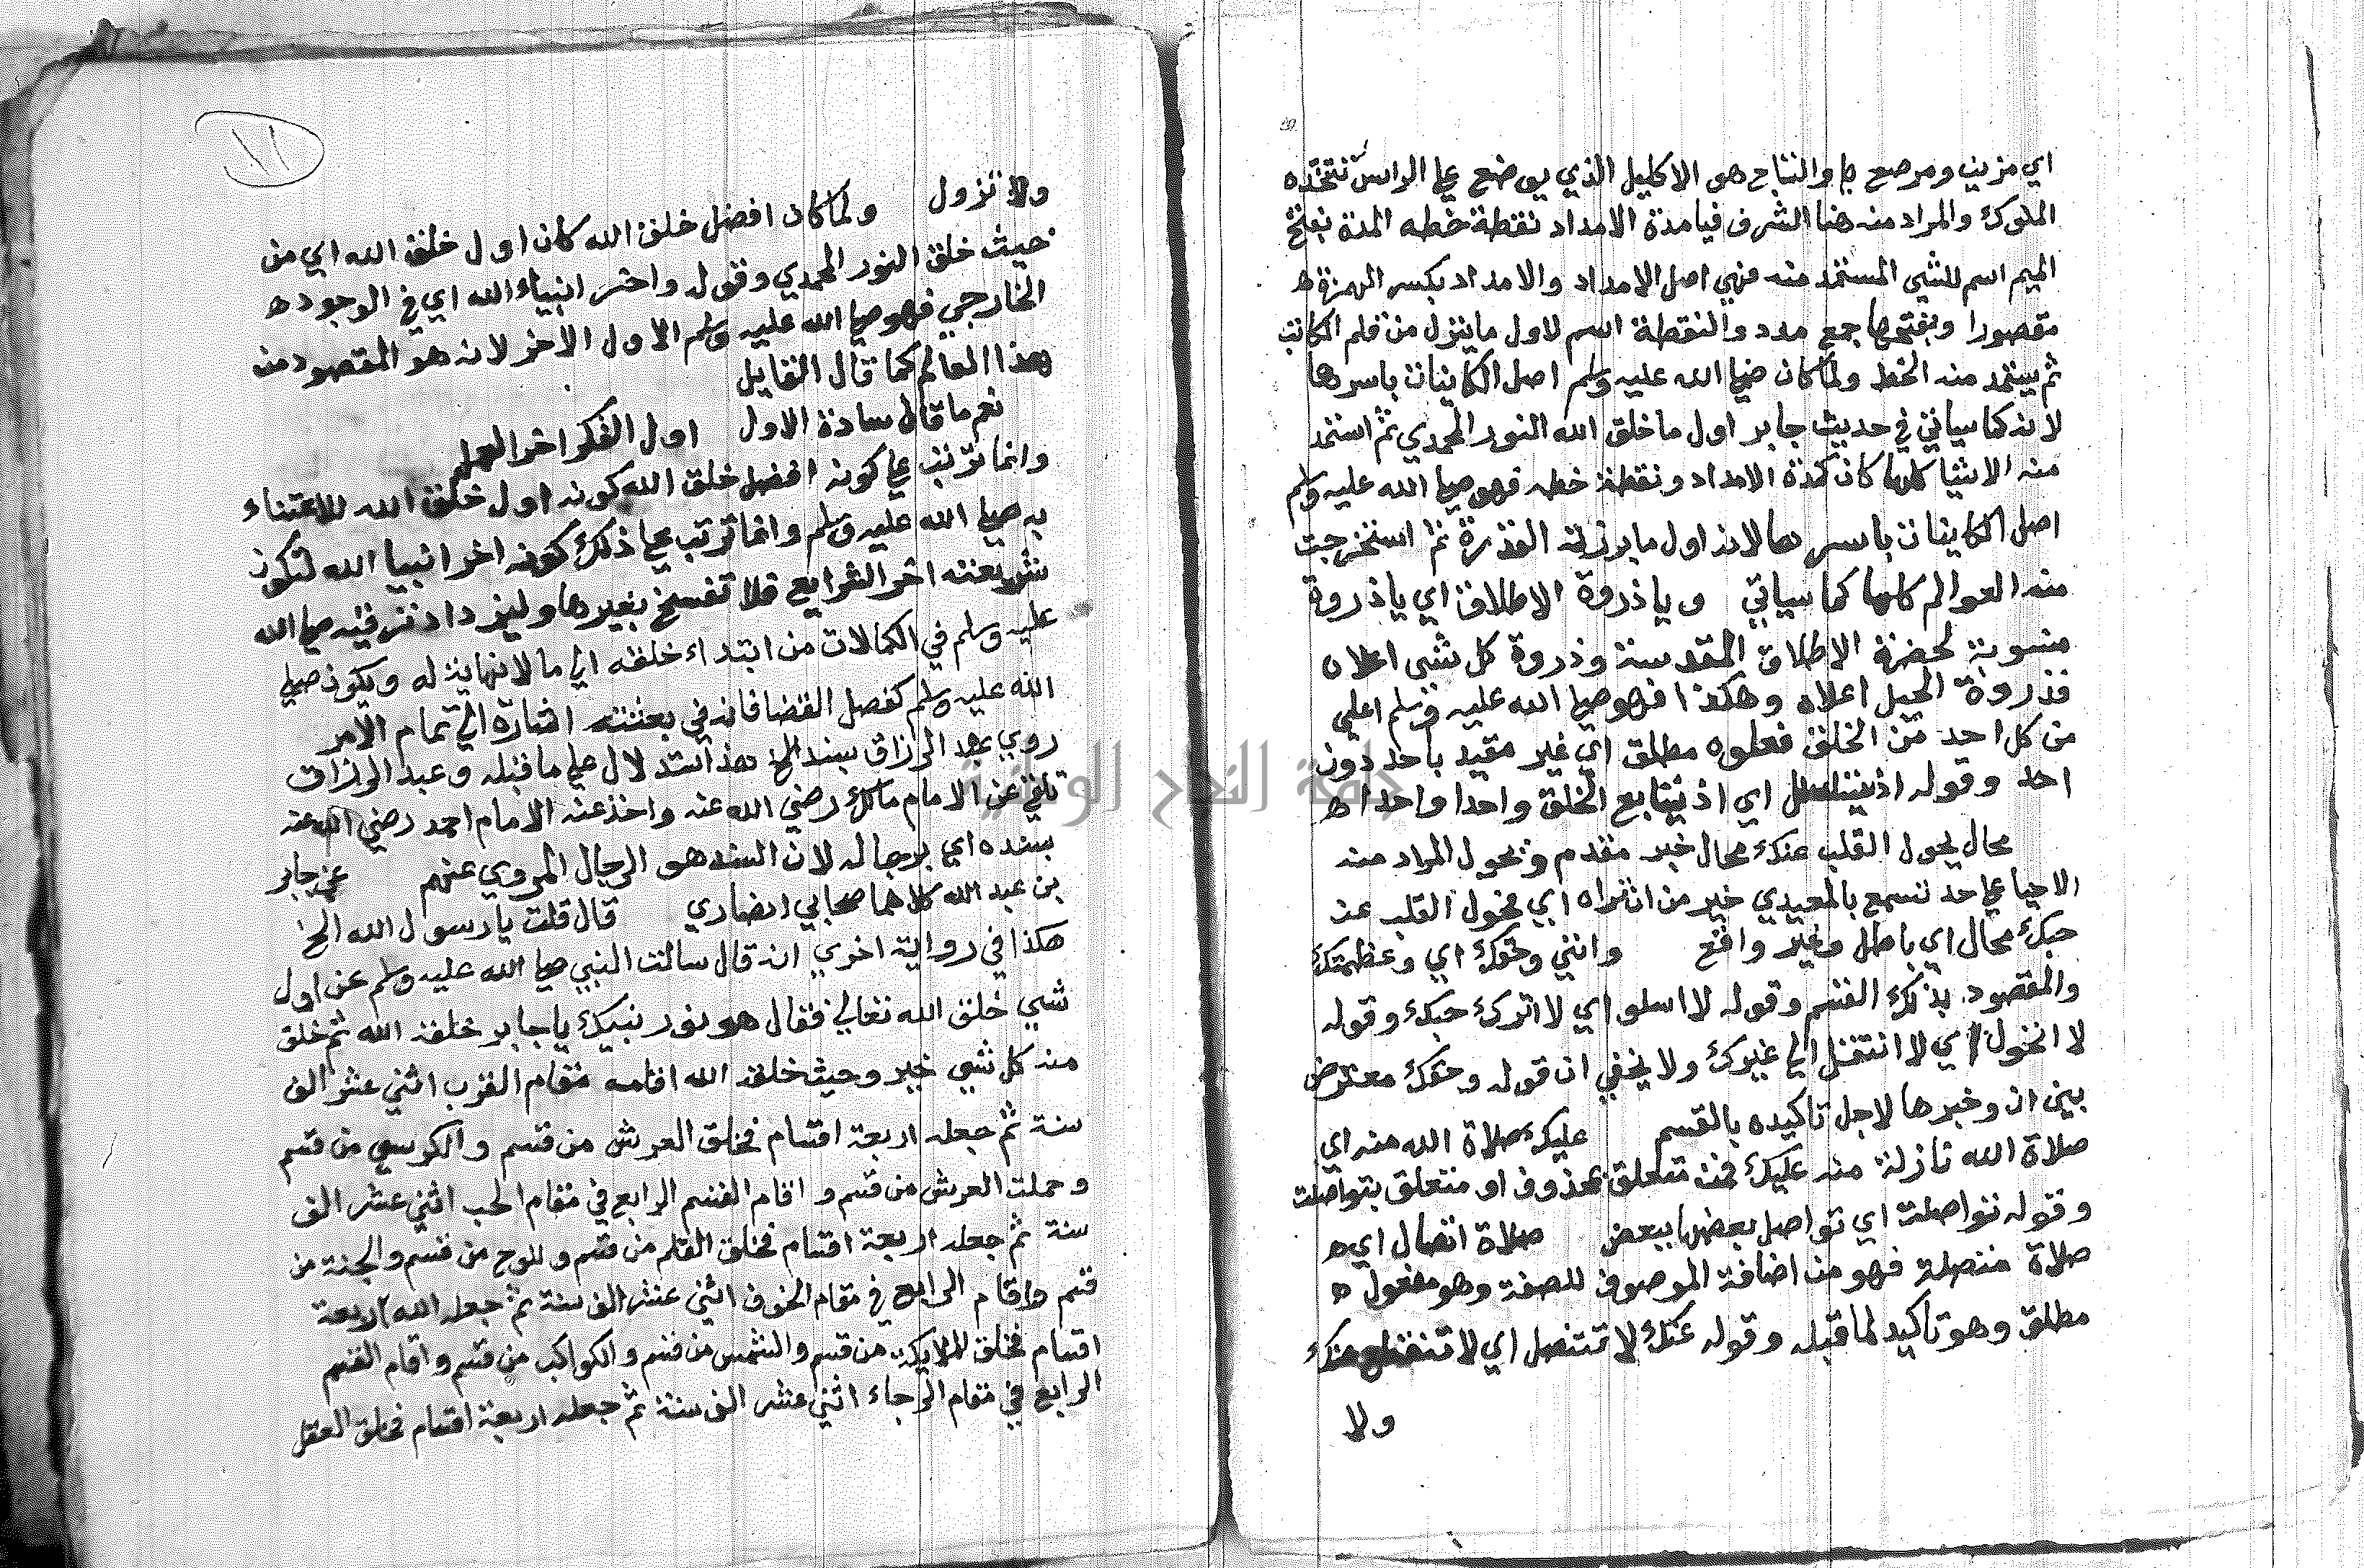 اي مزين ومرصع بها والتاج هو الاكليل الذي يوضع علي الراس تتخذه
الملوك والمراد منه هنا الشرف فيا مدة الامداد نقطة خطه المدة بفتح
الميم اسم للشي المستمد منه فهي اصل الامداد والامداد بكسر الهمزة
مقصورا وبفتحها جمع مدد والنقطة اسم لاول ما ينزل من قلم الكاتب
ثم يستمد منه الخط ولما كان صلي الله عليه وسلم اصل الكاينات باسرها
لانه كما سياتي في حديث جابر اول ما خلق الله النور المحمدي ثم استمد
منه الاشيا كلها كان كمدة الامداد ونقطة خطه فهو صلي الله عليه وسلم
اصل الكاينات باسرها لانه اول ما برز له القدرة ثم استخرجت
منه العوالم كلها كما سياتي ويا ذروة الاطلاق اي يا ذروة
منسوبة لحضرة الاطلاق المقدسة وذروة كل شي اعلاه
فذروة الجبل اعلاه وهكذا فهو صلي الله عليه وسلم اعلي
من كل احد من الخلق فعلوه مطلق اي غير مقيد باحد دون
احد وقوله اذ يتسلسل اي اذ يتتابع الخلق واحدا واحدا
محال يحول القلب عنك محال خبر مقدم ويحول المراد منه
الاحيا علي حد تسمع بالمعيدي خير من ان تراه اي تحول القلب عن
حبك محال اي باطل وغير واقع وانني وحقك اي وعظمتك
والمقصود بذلك القسم وقوله لا اسلو اي لا اترك حبك وقوله
لا اتحول اي لا انتقل الي غيرك ولا يخفي ان قوله وحقك معترض
بين ان وخبرها لاجل تاكيده بالقسم عليك صلاة الله منه اي
صلاة الله نازلة منه عليك فمنه متعلق بمحذوف او متعلق بتواصلت
وقوله تواصلت اي تواصل بعضها ببعض صلاة اتصال اي
صلاة متصلة فهو من اضافة الموصوف للصفة وهو مفعول
مطلق وهو تاكيد لما قبله وقوله عنك لا تتنصل اي لا تنقطع عنك
ولا
١١
ولا تزول ولما كان افضل خلق الله كان اول خلق الله اي من
حيث خلق النور المحمدي وقوله واخر انبياء الله اي في الوجود
الخارجي فهو صلي الله عليه وسلم الاول الاخر لانه هو المقصود من
هذا العالم كما قال القايل
نعم ما قال سادة الاول اول الفكر اخر العمل
وانما ترتب علي كونه افضل خلق الله كونه اول خلق الله للاعتناء
به صلي الله عليه وسلم وانما ترتب علي ذلك كونه اخر انبيا الله لتكون
شريعته اخر الشرايع فلا تفسخ بغيرها وليزداد ترقيه صلي الله
عليه وسلم في الكمالات من ابتداء خلقه الي ما لا نهاية له ويكون صلي
الله عليه وسلم كفصل القضا فانه في بعثته اشارة الي تمام الامر
روي عبد الرزاق بسنده الخ هذا استدلال علي ما قبله وعبد الرزاق
تلقي عن الامام مالك رضي الله عنه واخذ عنه الامام احمد رضي الله عنه
بسنده اي برجاله لان السند هو الرجال المروي عنهم عن جابر
بن عبد الله كلاهما صحابي انصاري قال قلت يا رسول الله الخ
هكذا في رواية اخري انه قال سالت النبي صلي الله عليه وسلم عن اول
شي خلق الله تعالي فقال هو نور نبيك يا جابر خلقه الله ثم خلق
منه كل شي خير وحيث خلقه الله اقامه مقام القرب اثني عشر الف
سنة ثم جعله اربعة اقسام فخلق العرش من قسم والكرسي من قسم
وحملت العرش من قسم واقام القسم الرابع في مقام الحب اثني عشر الف
سنة ثم جعله اربعة اقسام فخلق القلم من قسم واللوح من قسم والجنة من
قسم واقام الرابع في مقام الخوف اثني عشر الف سنة ثم جعله الله اربعة
اقسام فخلق الملايكة من قسم والشمس من قسم والكواكب من قسم واقام القسم
الرابع في مقام الرجاء اثني عشر الف سنة ثم جعله اربعة اقسام فخلق العقل
جامعة النجاح الوطنية